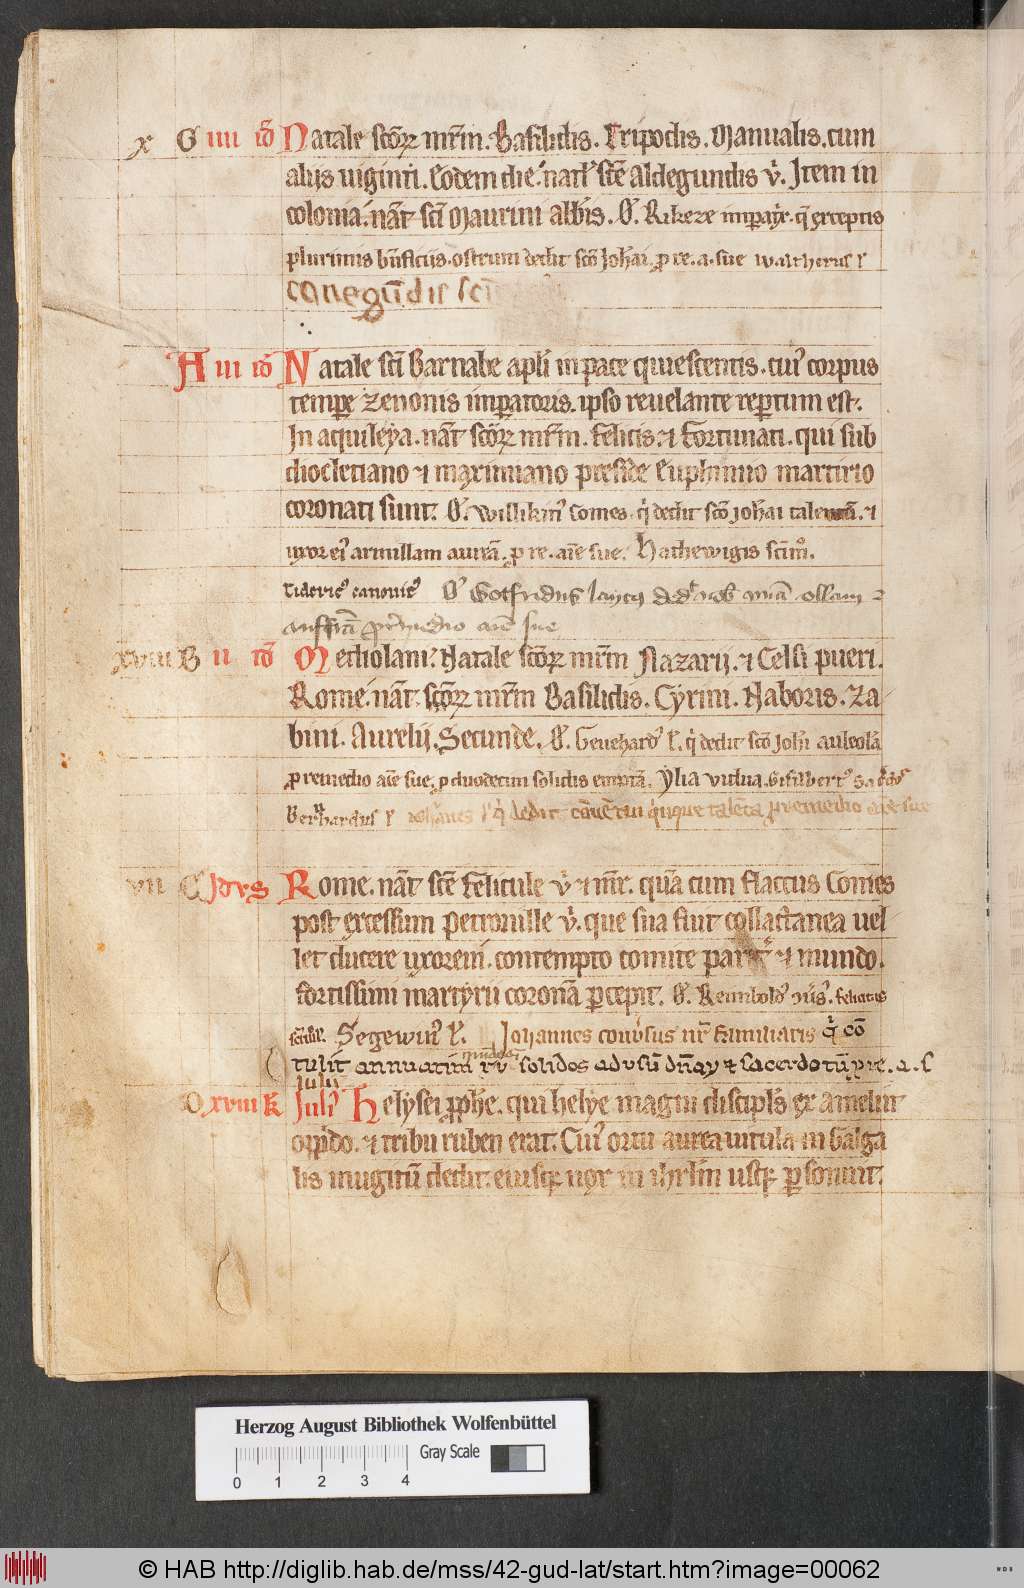 x G iiii id Natale scōꝝ mr̄m. Basilidis. Tripodis. Manualis. cum
alijs uiginti. Eodem die. nat̄l scē Aldegundis v̓. Item in
colonia. nat̄ scī Maurini abb̄is. O᷎. Rikeze impatx̓. q̄ exceptis
plurimis bn̄ficijs. ostrum dedit scō Joh̄ai. ꝓ re. a. sue Waltherus l̓
conegūdis sc̄i
A iii id Natale scī Barnabe apl̄i in pace quiescentis. cuiꝰ corpus
tempe zenonis impatoris. ipso reuelante repertum est.
In aquileẏa. nat̄ scōꝝ mr̄m. felicis. ⁊ fortunati. qui sub
diocletiano ⁊ maximiano preside Euphimio martirio
coronati sunt. O᷎. Willikinꝰ Comes. q̓ dedit scō joh̄ai talentū. ⁊
uxor eiꝰ armillam aureā. ꝓ re. aīe sue. Hathewigis
canonicꝰ O᷎ Gotfridus ollam
ꝓ remedio aīe sue
xviii B ii id Mediolani. Natale scōꝝ mr̄m Nazarij. ⁊ Celsi pueri.
Rome. nat̄ scōꝝ mr̄m Basilidis. Cẏrini. Naboris. Za
bini. Aurelij. Secunde. O᷎. Geuehardꝰ l̓. q̓ dedit scō Joh̄i aureolā
ꝓ remedio aīe sue ꝓ duodecim solidis emptā. Ẏlia vidua. Gisilbertꝰ
Gerhardus l̓ Joh̄nes l̓ q̓ dedit conuētui quinque talēta ꝓ remedio aīe sue
vii C Jdvs Rome. nat̄ scē felicule v̓ ⁊ mr̄. quā cum flaccus Comes
post excessum petronille v̓. que sua fuit collactanea uel
let ducere uxorem. contempto comite parit̓ ⁊ mundo.
fortissimi martẏrii coronā pcepit. O᷎. Reinboldꝰ felicitas
Segewinꝰ l̓. Johannes conūsus nr̄ familiaris q̓ cō
tulit annuatim xv solidos ad vsū dn̄aꝝ ⁊ sacerdotū ꝓ re. a. s
Iulij
D xviii K Iulij Helẏsei ꝓph̄e. qui helẏe magni discipl̓s ex amelmt
oppido. ⁊ tribu ruben erat. Cuiꝰ ortu aurea uitula in Galga
lis mugitū dedit. eiusqꝫ uox in ih̄rlm usqꝫ ꝑsonuit.
Herzog August Bibliothek Wolfenbüttel
Gray Scale
0 1 2 3 4
© HAB http://diglib.hab.de/mss/42-gud-lat/start.htm?image=00062